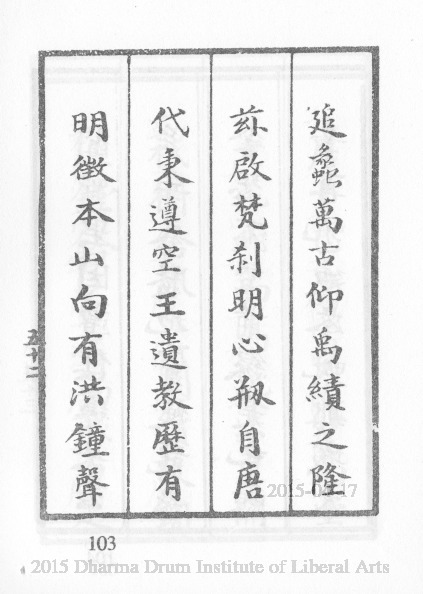 追蠡萬古仰禹績之隆
茲啟梵剎明心剏自唐
代秉遵空王遺教歷有
明徵本山向有洪鐘聲
五十二
103
2015 Dharma Drum Institute of Liberal Arts